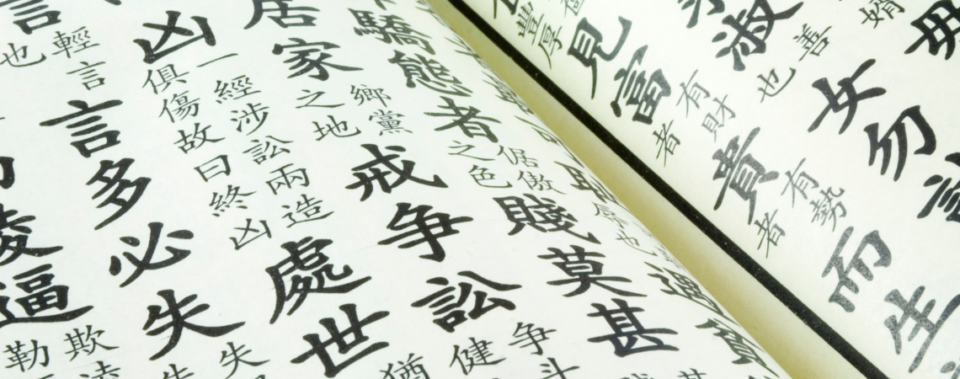 毋
淑
善
也
女勿
豐厚
見富
有財
者
貴
有勢
者
而生
驕態者
倨傲
之色
賤莫甚
居家
鄉黨
之地
戒爭訟
爭
健
凶
一經涉訟兩造
俱傷故曰終凶
處世
猶
輕言
也
言多必失
失
逼
欺
勒